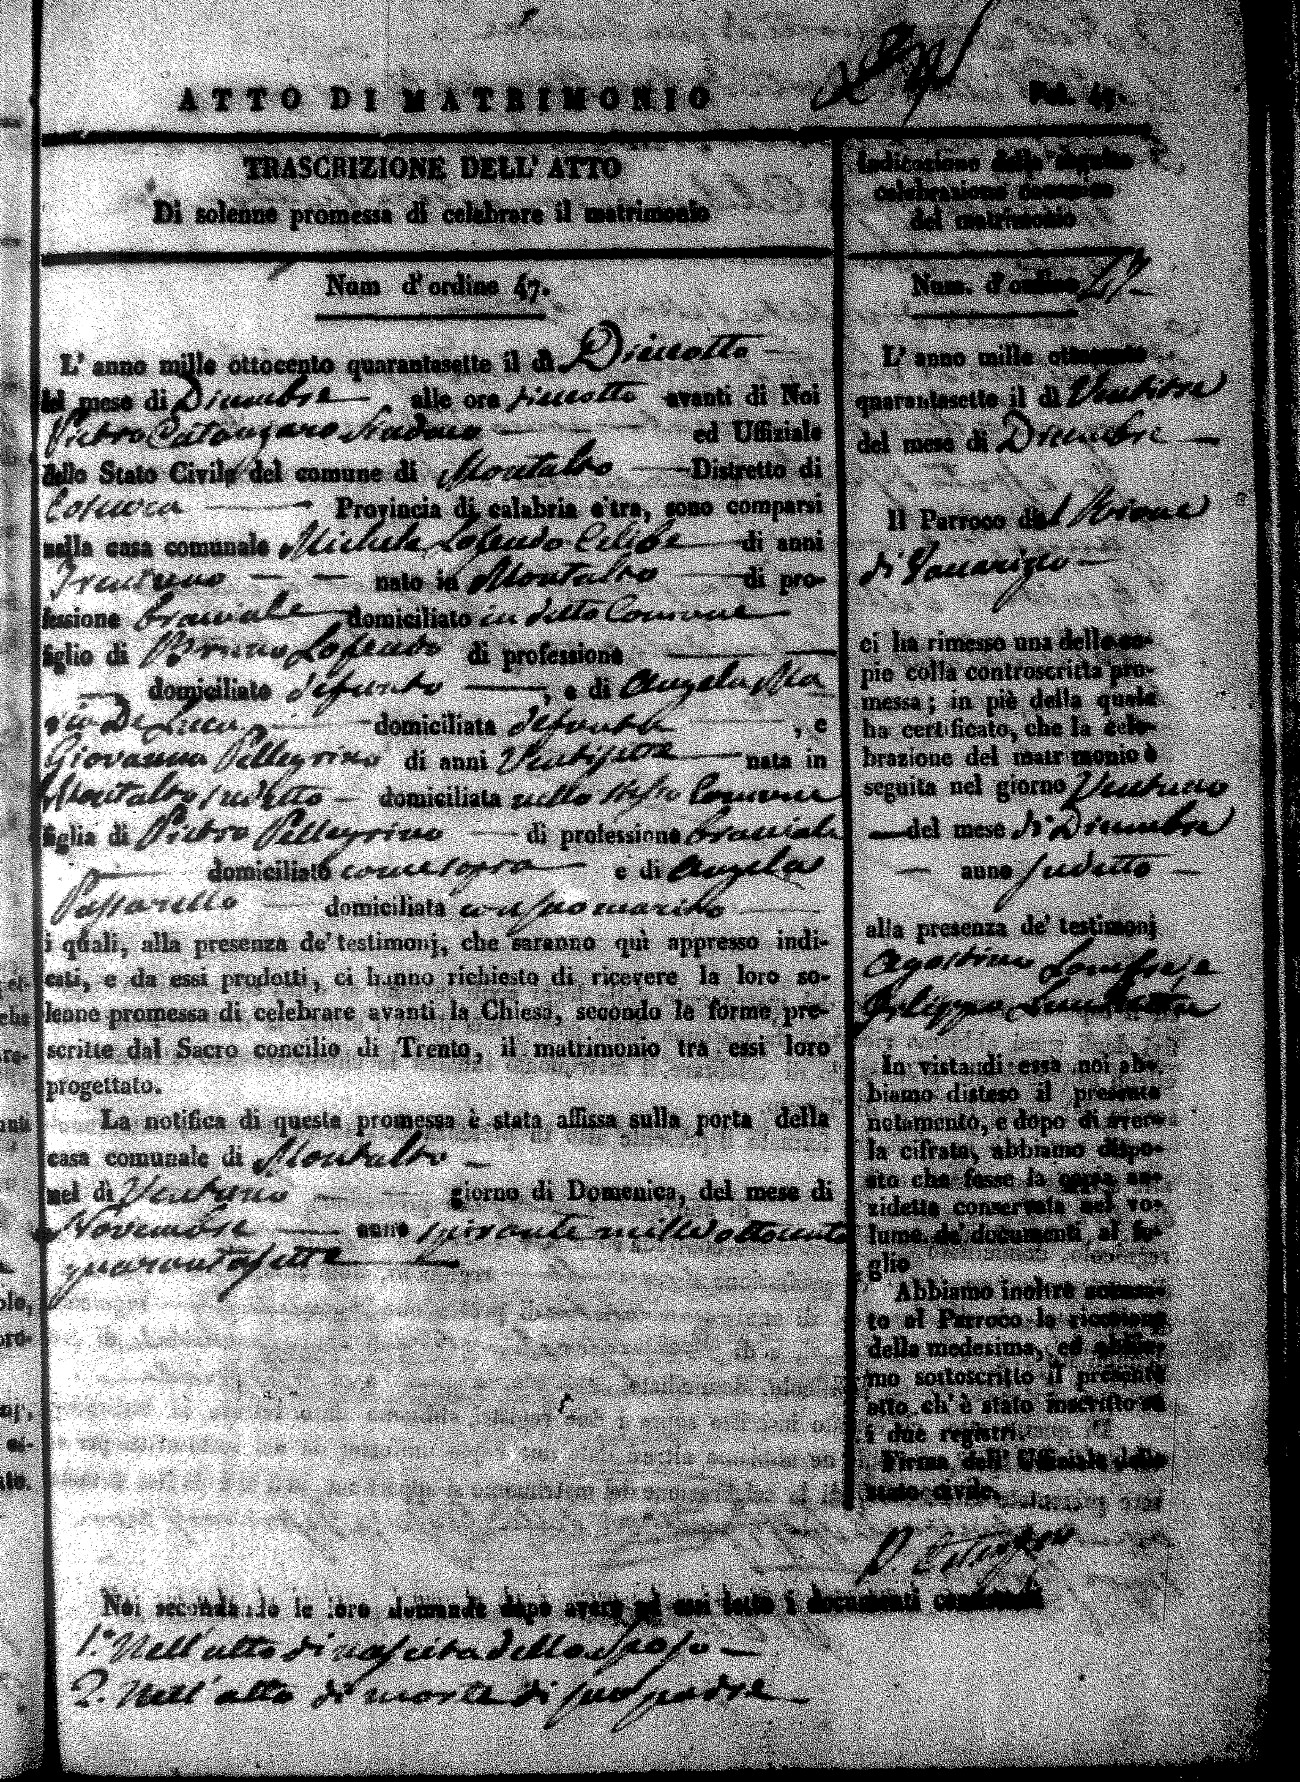 ATTO DI MATRIMONIO
Fol. 47.
TRASCRIZIONE DELL' ATTO
Di solenne promessa di celebrare il matrimonio
Num d'ordine 47.
L' anno mille ottocento quarantasette il dì Diciotto
del mese di Dicembre alle ore diciotto avanti di Noi
Pietro Catanzaro Sindaco ed Uffiziale
dello Stato Civile del comune di Montalto Distretto di
Cosenza Provincia di calabria citra, sono comparsi
nella casa comunale Michele Lofeudo Celibe di anni
Trentuno nato in Montalto di pro-
fessione bracciale domiciliato in detto Comune
figlio di Bruno Lofeudo di professione
domiciliato defunto, e di Angela Ma
ria De Luca domiciliata defunta, e
Giovanna Pellegrino di anni Ventisette nata in
Montalto sudetto domiciliata nello stesso Comune
figlia di Pietro Pellegrino di professione bracciale
domiciliato come sopra e di Angela
Passarello domiciliata con suo marito
i quali, alla presenza de' testimonj, che saranno quì appresso indi-
cati, e da essi prodotti, ci hanno richiesto di ricevere la loro so-
lenne promessa di celebrare avanti la Chiesa, secondo le forme pre-
scritte dal Sacro concilio di Trento, il matrimonio tra essi loro
progettato.
La notifica di questa promessa è stata affissa sulla porta della
casa comunale di Montalto
nel dì Ventuno giorno di Domenica, del mese di
Novembre anno spirante mille ottocento
quarantasette
Indicazione della seguita
celebrazione canonica
del matrimonio
Num. d'ordine 47
L' anno mille ottocento
quarantasette il dì Ventitre
del mese di Dicembre
Il Parroco del Rione
di
ci ha rimesso una delle co-
pie colla controscritta pro-
messa; in piè della quale
ha certificato, che la cele-
brazione del matrimonio è
seguita nel giorno Ventuno
del mese di Dicembre
anno sudetto
alla presenza de' testimonj
Agostino
Filippo
In vista di essa noi ab-
biamo disteso il presente
notamento, e dopo di aver-
la cifrata, abbiamo dispo-
sto che fosse la copia su-
ridetta conservata nel vo-
lume de' documenti al fo-
glio
Abbiamo inoltre accusa-
to al Parroco la ricezione
della medesima, ed abbia-
mo sottoscritto il presente
atto ch' è stato inscritto su
i due registri.
Firma dell' Uffiziale dello
stato civile.
Noi secondando le loro domande dopo avere ad essi letto i documenti consistenti
1.° Nell'atto di nascita dello sposo
2. Nell'atto di morte di suo padre